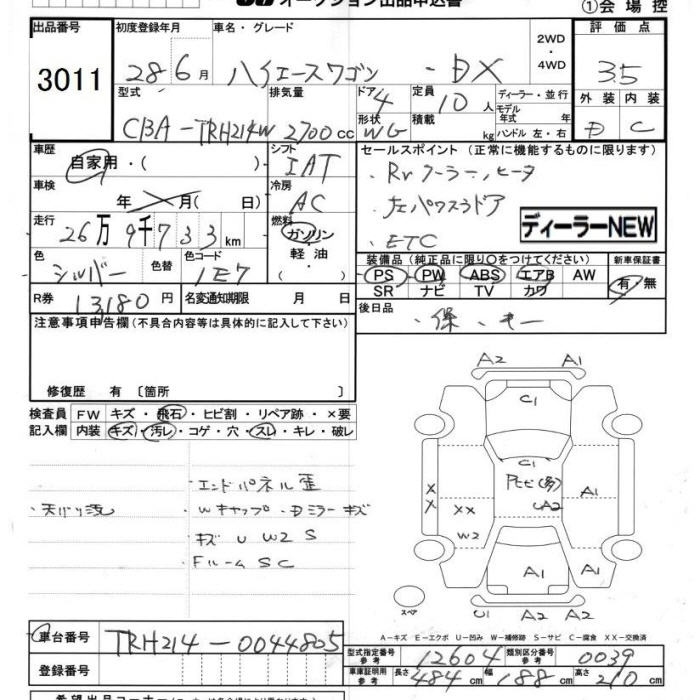 オークション出品申込書 ①会場控
出品番号 初度登録年月 車名・グレード 2WD・4WD 評価点
3011 28 6月 ハイエースワゴン -DX 3.5
型式 排気量 ドア 4 定員 10人 ディーラー・並行 外装 内装
CBA-TRH214W 2700cc 形状 WG 積載 kg モデル年式 年 ハンドル 左・右 D C
車歴 自家用・( ) シフト IAT セールスポイント (正常に機能するものに限ります)
車検 年 月( 日) 冷房 AC ・Rrクーラー、ヒータ
走行 26万9千733km 燃料 ガソリン・軽油・ ・左パワスラドア ディーラーNEW
・ETC
色 シルバー 色替 色コード 1E7 装備品 (純正品に限り○をつけてください) 新車保証書
PS PW ABS エアB AW 有・無
SR ナビ TV カワ
R券 13180円 名変通知期限 月 日 後日品
・保、キー
注意事項申告欄(不具合内容等は具体的に記入して下さい)
修復歴 有 〔箇所 〕
検査員記入欄 FW キズ・飛石・ヒビ割・リペア跡・×要
内装 キズ・汚レ・コゲ・穴・スレ・キレ・破レ
・エンドパネル歪
・Wキャップ・Dミラーキズ
・キズ U W2 S
・Fルーム SC
A2 A1
C1
C1
A1
XX
XX
W2
A2
A1
A1
スペア
U1 A2 A2
A-キズ E-エクボ U-凹み W-補修跡 S-サビ C-腐食 XX-交換済
車台番号 TRH214-0044805
登録番号
型式指定番号 参考 12604 類別区分番号 参考 0039
車庫証明用 参考 長さ 484cm 幅 188cm 高さ 210cm